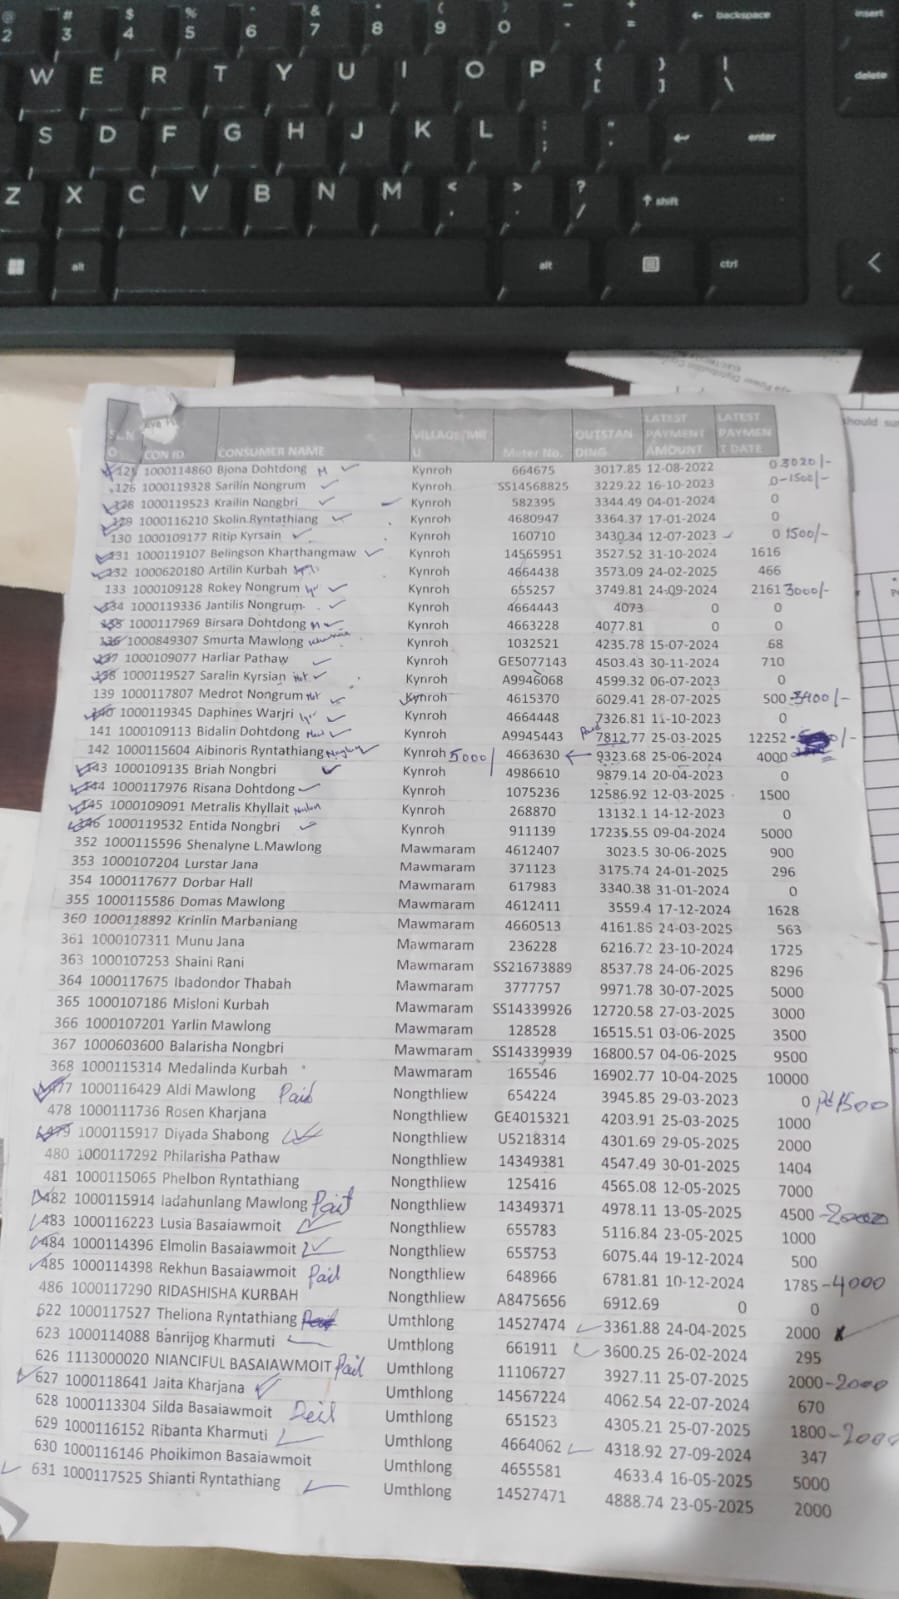 @ # $ % ^ & * ( ) – + ← backspace insert
2 3 4 5 6 7 8 9 0 - =
W E R T Y U I O P { [ } ] | \ delete
S D F G H J K L : ; " ' ↵ enter
Z X C V B N M < , > . ? / ↑ shift
alt alt ctrl
should su
CON ID CONSUMER NAME VILLAGE/MRU Meter No. OUTSTANDING LATEST PAYMENT AMOUNT LATEST PAYMENT DATE
125 1000114860 Bjona Dohtdong M Kynroh 664675 3017.85 12-08-2022 0 3020/-
126 1000119328 Sarilin Nongrum Kynroh SS14568825 3229.22 16-10-2023 0-1500/-
128 1000119523 Krailin Nongbri Kynroh 582395 3344.49 04-01-2024 0
129 1000116210 Skolin.Ryntathiang Kynroh 4680947 3364.37 17-01-2024 0
130 1000109177 Ritip Kyrsain Kynroh 160710 3430.34 12-07-2023 0 1500/-
131 1000119107 Belingson Kharthangmaw Kynroh 14565951 3527.52 31-10-2024 1616
132 1000620180 Artilin Kurbah Kynroh 4664438 3573.09 24-02-2025 466
133 1000109128 Rokey Nongrum Kynroh 655257 3749.81 24-09-2024 2161 3000/-
134 1000119336 Jantilis Nongrum Kynroh 4664443 4073 0 0
135 1000117969 Birsara Dohtdong M Kynroh 4663228 4077.81 0 0
136 1000849307 Smurta Mawlong Kynroh 1032521 4235.78 15-07-2024 68
137 1000109077 Harliar Pathaw Kynroh GE5077143 4503.43 30-11-2024 710
138 1000119527 Saralin Kyrsian Kynroh A9946068 4599.32 06-07-2023 0
139 1000117807 Medrot Nongrum Kynroh 4615370 6029.41 28-07-2025 500-3400/-
140 1000119345 Daphines Warjri Kynroh 4664448 7326.81 11-10-2023 0
141 1000109113 Bidalin Dohtdong Kynroh A9945443 Paid 7812.77 25-03-2025 12252 /-
142 1000115604 Aibinoris Ryntathiang Kynroh 5000/ 4663630 ← 9323.68 25-06-2024 4000
143 1000109135 Briah Nongbri Kynroh 4986610 9879.14 20-04-2023 0
144 1000117976 Risana Dohtdong Kynroh 1075236 12586.92 12-03-2025 1500
145 1000109091 Metralis Khyllait Kynroh 268870 13132.1 14-12-2023 0
146 1000119532 Entida Nongbri Kynroh 911139 17235.55 09-04-2024 5000
352 1000115596 Shenalyne L.Mawlong Mawmaram 4612407 3023.5 30-06-2025 900
353 1000107204 Lurstar Jana Mawmaram 371123 3175.74 24-01-2025 296
354 1000117677 Dorbar Hall Mawmaram 617983 3340.38 31-01-2024 0
355 1000115586 Domas Mawlong Mawmaram 4612411 3559.4 17-12-2024 1628
360 1000118892 Krinlin Marbaniang Mawmaram 4660513 4161.85 24-03-2025 563
361 1000107311 Munu Jana Mawmaram 236228 6216.72 23-10-2024 1725
363 1000107253 Shaini Rani Mawmaram SS21673889 8537.78 24-06-2025 8296
364 1000117675 Ibadondor Thabah Mawmaram 3777757 9971.78 30-07-2025 5000
365 1000107186 Misloni Kurbah Mawmaram SS14339926 12720.58 27-03-2025 3000
366 1000107201 Yarlin Mawlong Mawmaram 128528 16515.51 03-06-2025 3500
367 1000603600 Balarisha Nongbri Mawmaram SS14339939 16800.57 04-06-2025 9500
368 1000115314 Medalinda Kurbah Mawmaram 165546 16902.77 10-04-2025 10000
477 1000116429 Aldi Mawlong Paid Nongthliew 654224 3945.85 29-03-2023 0 pd 1500
478 1000111736 Rosen Kharjana Nongthliew GE4015321 4203.91 25-03-2025 1000
479 1000115917 Diyada Shabong Nongthliew U5218314 4301.69 29-05-2025 2000
480 1000117292 Philarisha Pathaw Nongthliew 14349381 4547.49 30-01-2025 1404
481 1000115065 Phelbon Ryntathiang Nongthliew 125416 4565.08 12-05-2025 7000
482 1000115914 Iadahunlang Mawlong Paid Nongthliew 14349371 4978.11 13-05-2025 4500-2000
483 1000116223 Lusia Basaiawmoit Nongthliew 655783 5116.84 23-05-2025 1000
484 1000114396 Elmolin Basaiawmoit Nongthliew 655753 6075.44 19-12-2024 500
485 1000114398 Rekhun Basaiawmoit Paid Nongthliew 648966 6781.81 10-12-2024 1785-4000
486 1000117290 RIDASHISHA KURBAH Nongthliew A8475656 6912.69 0 0
622 1000117527 Theliona Ryntathiang Umthlong 14527474 3361.88 24-04-2025 2000
623 1000114088 Banrijog Kharmuti Umthlong 661911 3600.25 26-02-2024 295
626 1113000020 NIANCIFUL BASAIAWMOIT Paid Umthlong 11106727 3927.11 25-07-2025 2000-2000
627 1000118641 Jaita Kharjana Umthlong 14567224 4062.54 22-07-2024 670
628 1000113304 Silda Basaiawmoit Umthlong 651523 4305.21 25-07-2025 1800-2000
629 1000116152 Ribanta Kharmuti Umthlong 4664062 4318.92 27-09-2024 347
630 1000116146 Phoikimon Basaiawmoit Umthlong 4655581 4633.4 16-05-2025 5000
631 1000117525 Shianti Ryntathiang Umthlong 14527471 4888.74 23-05-2025 2000